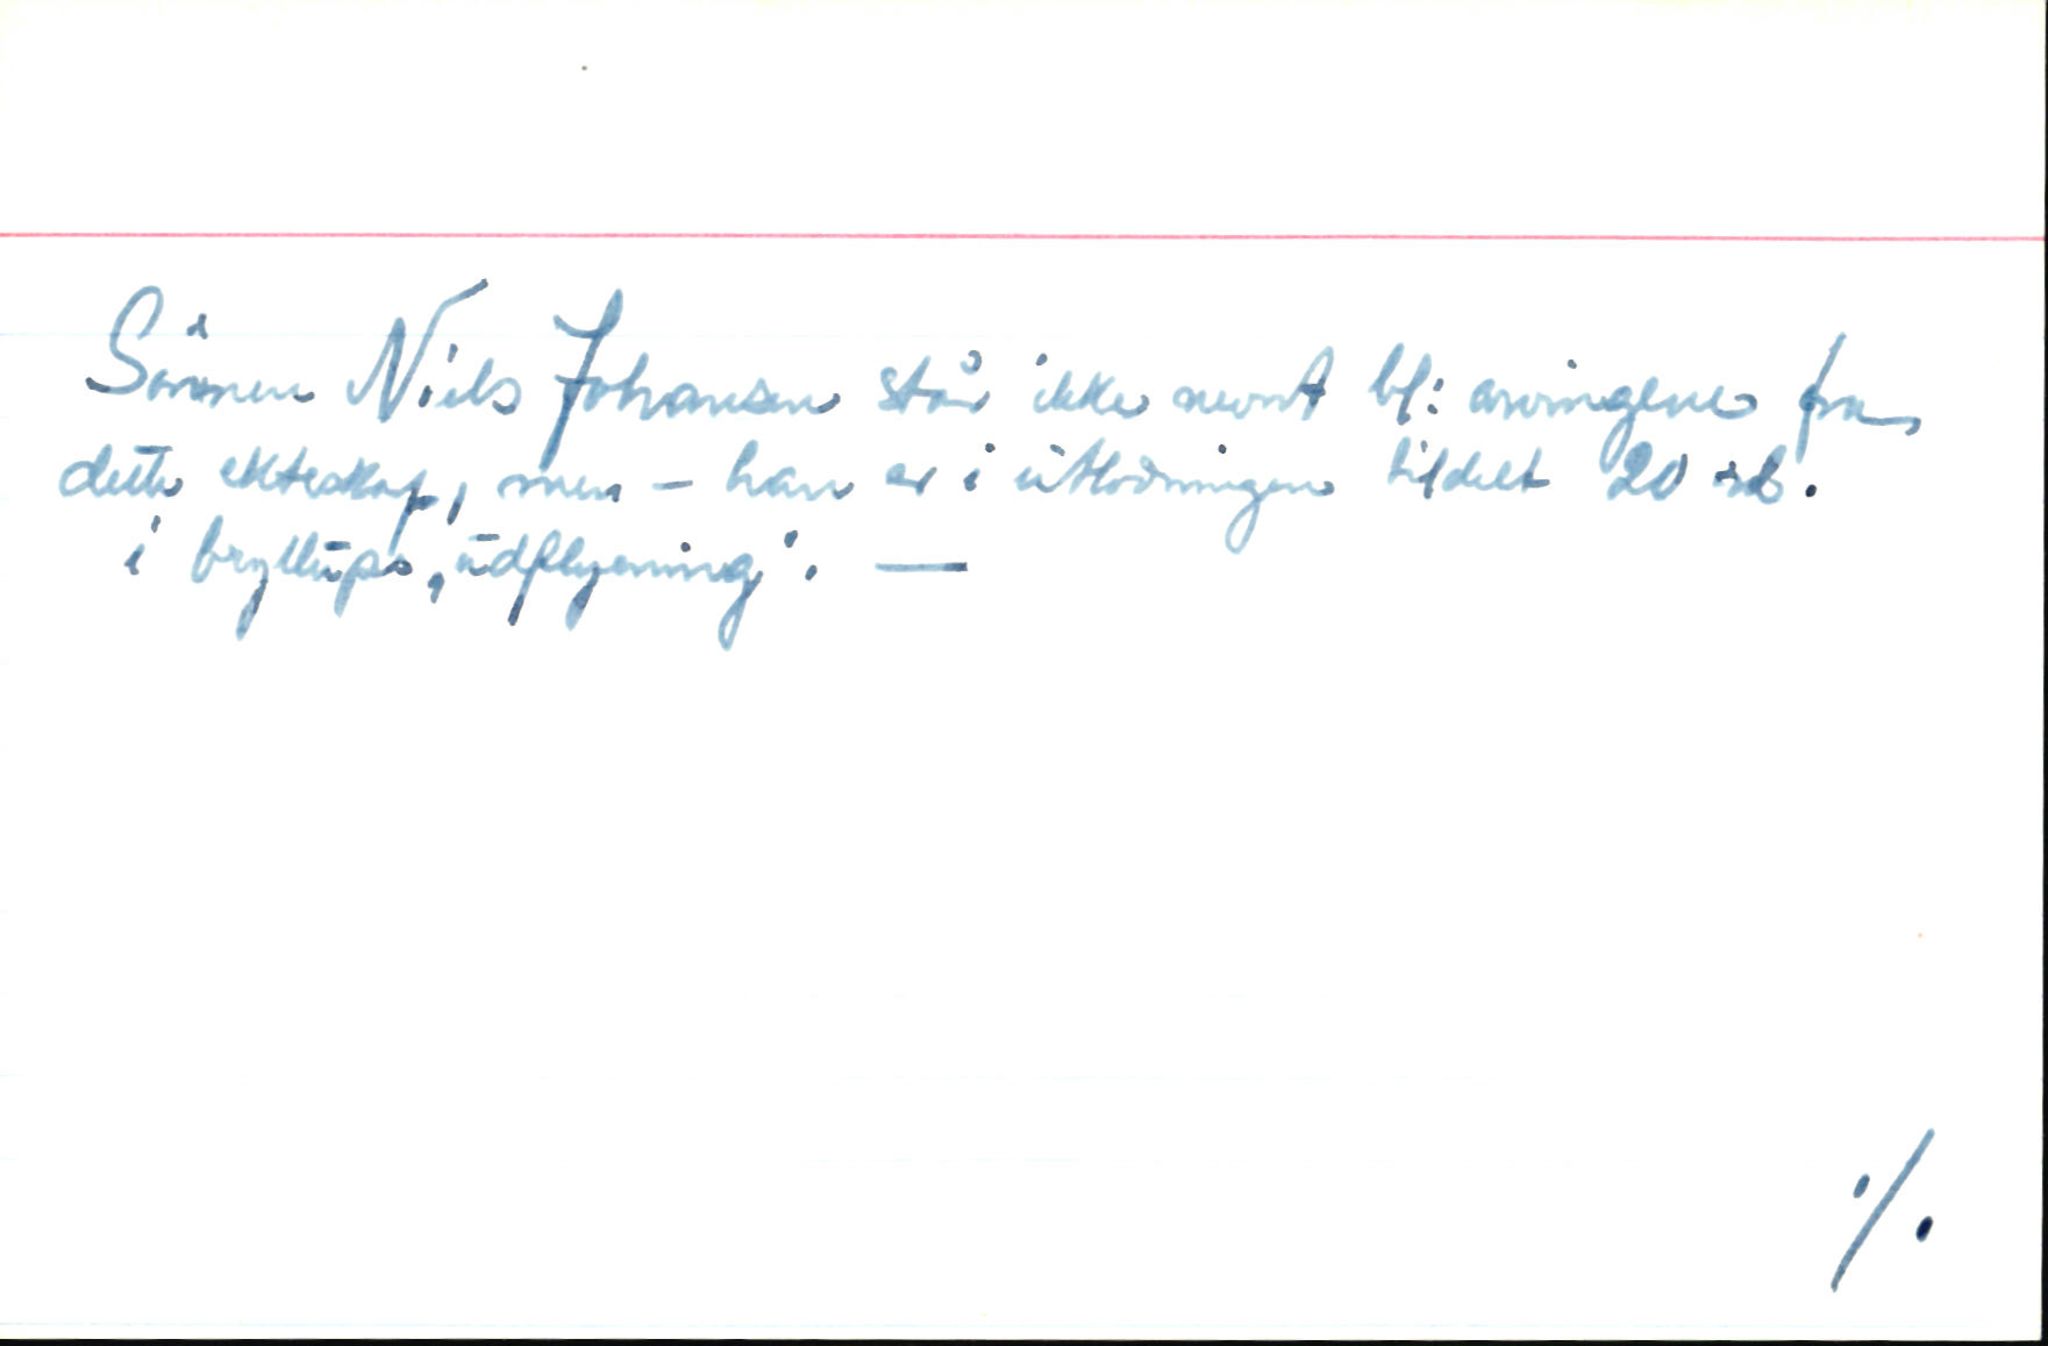 Sönnen Niels Johansen står ikke nevnt bl: arvingene fra
dette ekteskap, men - han er i utlodningen tildelt 20 rd.
i bryllups „udflyening". —
·/.